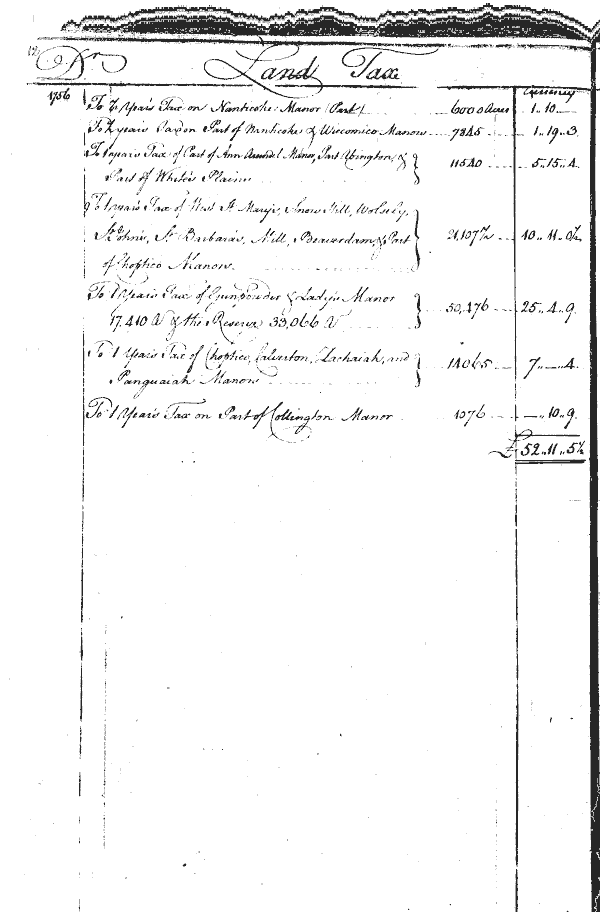 12
Dr Land Tax
Currency
1756 To ½ Years Tax on Nanticoke Manor (Part) 6000 Acres 1.. 10 —
To ½ years Tax on Part of Nanticoke & Wiccomico Manors 7845 1.. 19.. 3
To 1 years Tax of Part of Ann Arundel Manor, Part Abington, & 11540 5.. 15.. 4
Part of White's Plains
To 1 years Tax of West St Mary's, Snow Hill, Wolsely,
St Johns, St Barbara's, Mill, Beaverdam, & Part 21,107½ 10.. 11.. 0½
of Choptico Manors
To 1 Years Tax of Gunpowder & Lady's Manor 50,476 25.. 4.. 9
17.410 A & the Reserve 33,066 A
To 1 Years Tax of Choptico, Calverton, Zachaiah, and 14065 7.. — .. 4
Panguaiah Manors
To 1 Years Tax on Part of Collington Manor 1076 —.. 10.. 9
£ 52.. 11.. 5½